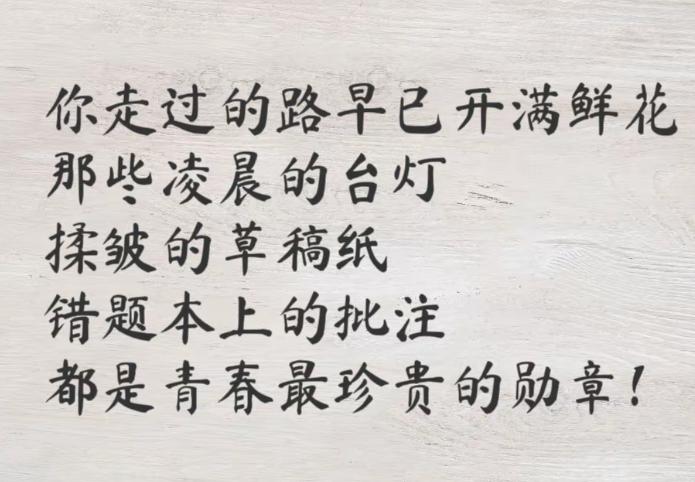 你走过的路早已开满鲜花
那些凌晨的台灯
揉皱的草稿纸
错题本上的批注
都是青春最珍贵的勋章！